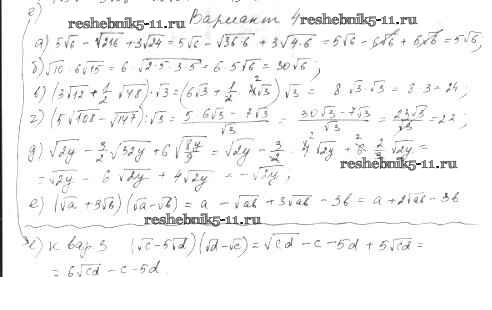 reshebnik5-11.ru
Вариант 4 reshebnik5-11.ru
а) 5√6 - √216 + 3√24 = 5√6 - √36·6 + 3√4·6 = 5√6 - 6√6 + 6√6 = 5√6;
б) √10 · 6√15 = 6 √2·5·3·5 = 6·5√6 = 30√6;
в) (3√12 + 1/2 √48)·√3 = (6√3 + 1/2 · 4√3) √3 = 8√3·√3 = 8·3 = 24;
г) (5√108 - √147) : √3 = 5·6√3 - 7√3 / √3 = 30√3 - 7√3 / √3 = 23√3 / √3 =
д) √2y - 3/2 √32y + 6 √8y/9 = √2y - 3/2 · 4√2y + 6 · 2/3 √2y =
= √2y - 6√2y + 4√2y = -√2y;
е) (√a + 3√b)(√a - √b) = a - √ab + 3√ab - 3b = a + 2√ab - 3b
reshebnik5-11.ru
к вар 3 (√c - 5√d)(√d - √c) = √cd - c - 5d + 5√cd =
= 6√cd - c - 5d.
reshebnik5-11.ru